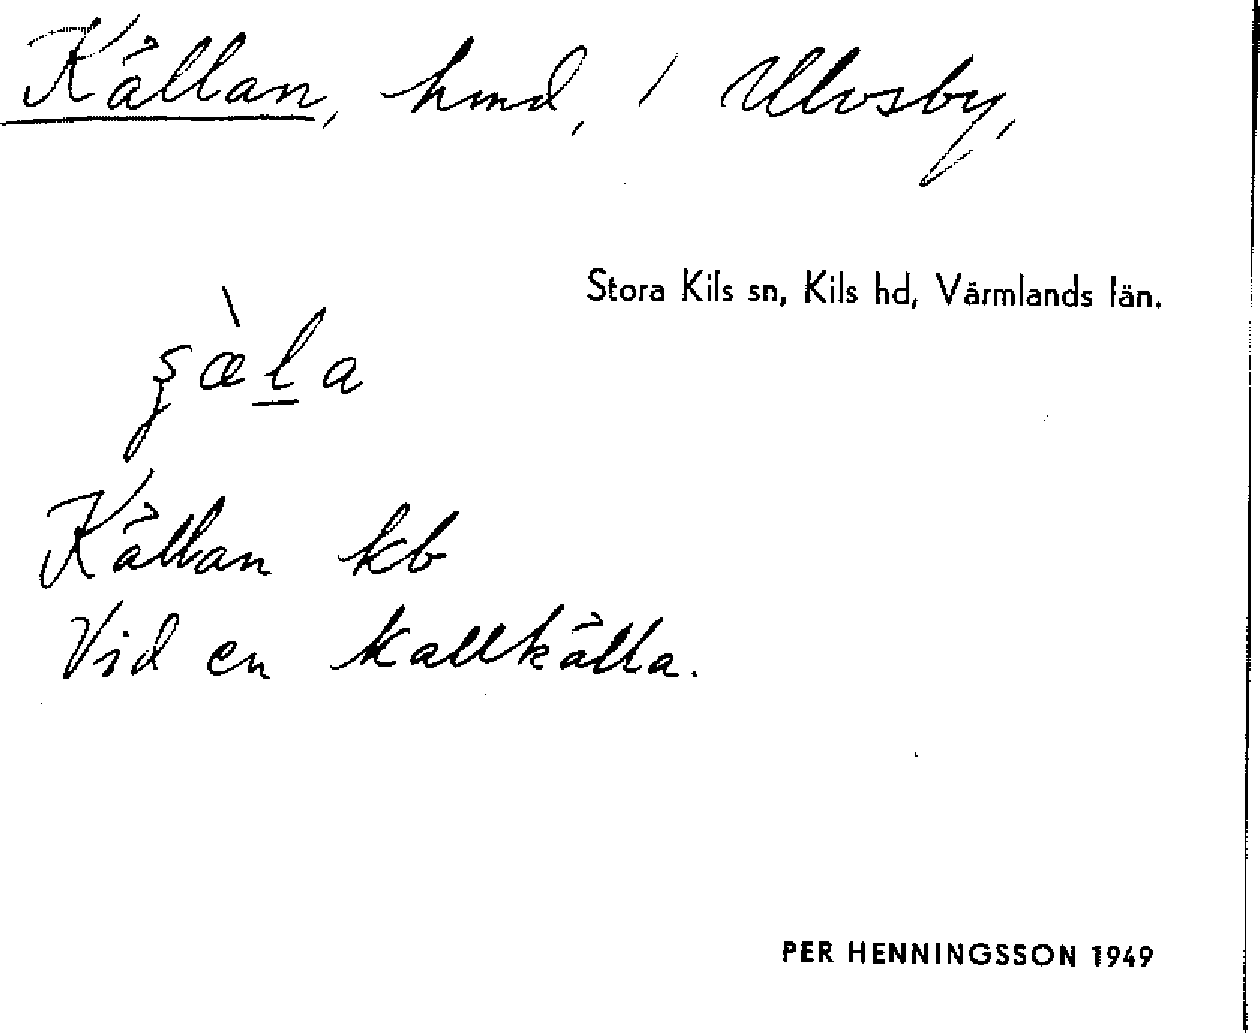 Källan, hmd, i Ulvsby,
Stora Kils sn, Kils hd, Värmlands län.
Källan kb
Vid en kallkälla.
PER HENNINGSSON 1949